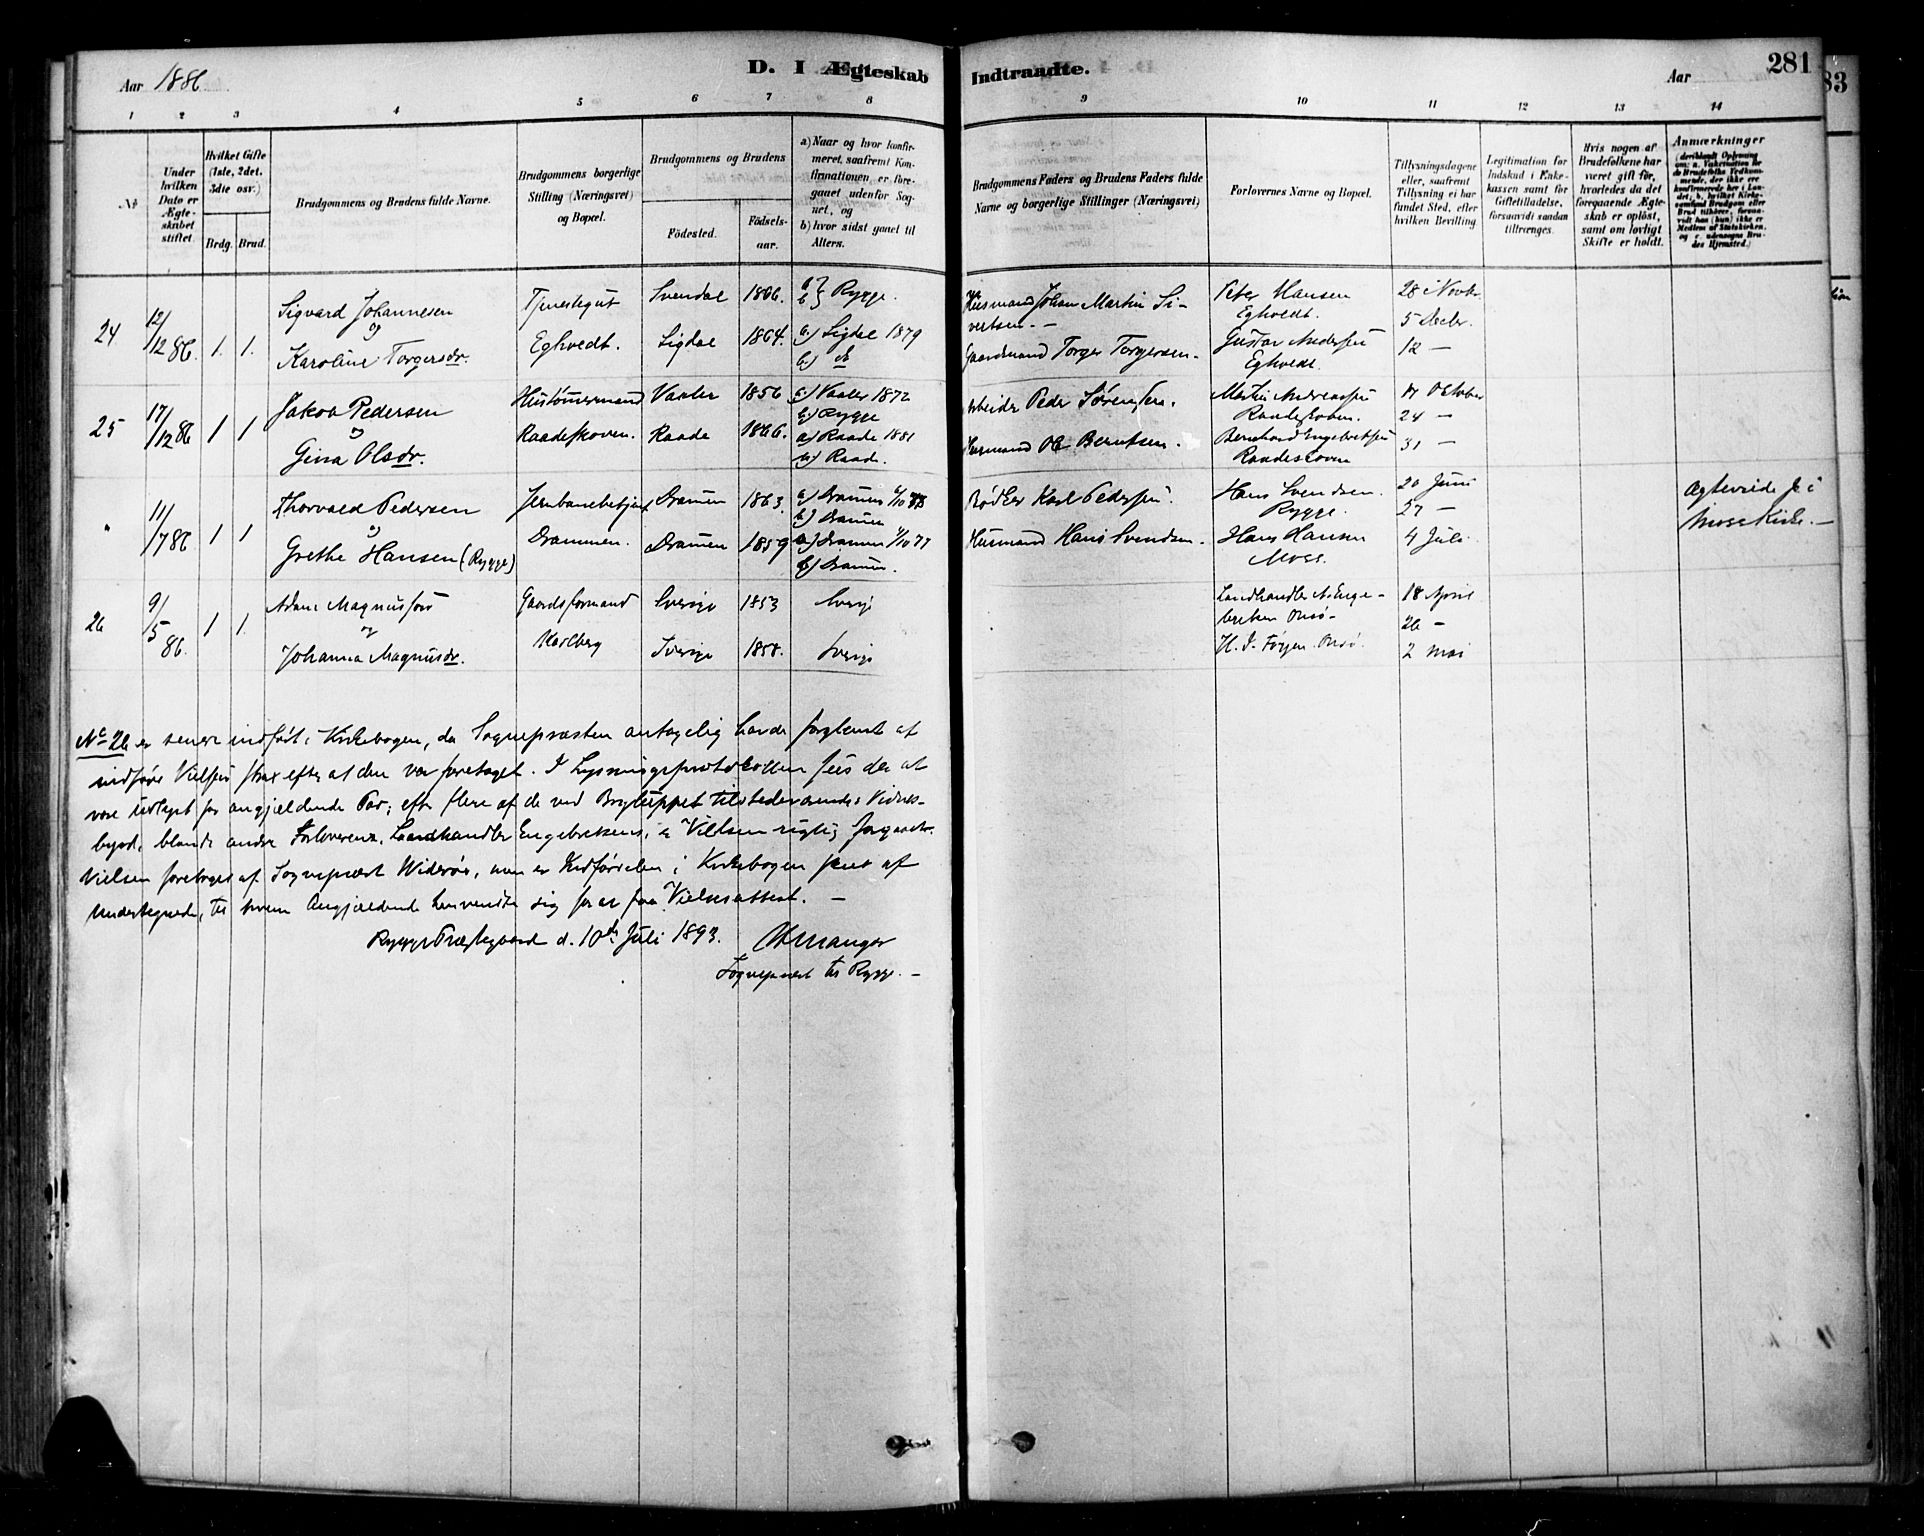 Aar 1886
D. I Ægteskab Indtraadte.
Aar
281
83
1 2 3 4 5 6 7 8 9 10 11 12 13 14
No
Under hvilken Dato er Ægteskabet stiftet.
Hvilket Gifte (1ste, 2det, 3die osv.)
Brdg. Brud.
Brudgommens og Brudens fulde Navne.
Brudgommens borgerlige Stilling (Næringsvei) og Bopæl.
Brudgommens og Brudens
Födested. Födselsaar.
a) Naar og hvor konfirmeret, saafremt Konfirmationen er foregaaet udenfor Sognet, og
b) hvor sidst gaaet til Alters.
Brudgommens Faders og Brudens Faders fulde Navne og borgerlige Stillinger (Næringsvei)
Forlovernes Navne og Bopæl.
Tillysningsdagene eller, saafremt Tillysning ei har fundet Sted, efter hvilken Bevilling
Legitimation for Indskud i Enkekassen samt for Giftetilladelse, forsaavidt saadan tiltrænges.
Hvis nogen af Brudefolkene har været gift för, hvorledes da det foregaaende Ægteskab er oplöst, samt om lovligt Skifte er holdt.
Anmærkninger
24 12/12 86. 1. 1.
Sigvard Johannesen Tjenestegut Svendal 1866. a) b) Rygge.
og
Karoline Torgersdr. Eghvedt. Sigdal 1864. a) Sigdal 1879
b) do
Husmand Johan Martin Sivertsen. -
Gaardmand Torger Torgersen.
Peter Hansen Eghvedt.
Gustav Andersen Eghvedt.
28 Novbr.
5 Decbr.
12 —
25 17/12 86 1 1
Jakob Pedersen Hustømermand Vaaler 1856 a) Vaaler 1872
b) Rygge
og
Gina Olsdr. Raadeskoven. Raade 1866. a) Raade 1881
b) Raade.
Arbeider Peder Sørensen.
Husmand Ole Berntsen.
Martin Andreassen Raadeskoven.
Bernhard Engebretsen Raadeskoven
17 Oktober
24 —
31 —
" 11/7 86 1 1
Thorvald Pedersen Jernbanebetjent Dramen 1863. a) Dramen
b) Dramen
og
Grethe Hansen (Rygge) Drammen. Dramen 1859 a) Dramen 1/10 77
b) Dramen.
Bødker Karl Pedersen.
Husmand Hans Svendsen.
Hans Svendsen. Rygge.
Hans Hansen Moss.
20 Juni
27 —
4 Juli
Ægteviede i Moss Kirke. —
26 9/5 86. 1 1.
Adam Magnusson Gaardsformand Sverige 1853 Sverige
og
Johanna Magnusdr. Karlberg Sverige 1858. Sverige
Landhandler A. Engebretsen Onsø.
H. J. Onsø.
18 April
26 —
2 Mai
No 26 er senere indført i Kirkebogen, da Sognepræsten antagelig havde forglemt at
indføre Vielsen strax efter at den var foretaget. I Lysningsprotokollen sees der at
være udtaget for angjældende Par; efter flere af de ved Brylluppet tilstedeværendes Vidnes-
byrd, blandt andre Forloverens, Landhandler Engebretsens, er Vielsen rigtig foregaaet.
Vielsen foretoges af Sognepræst Widerøe, men er Indførselen i Kirkebogen skeet af
Undertegnede, til hvem Angjældende henvendte sig for at faa Vielsesattest. —
Rygge Præstegaard d. 10de Juli 1893.
Sognepræst til Rygge. —